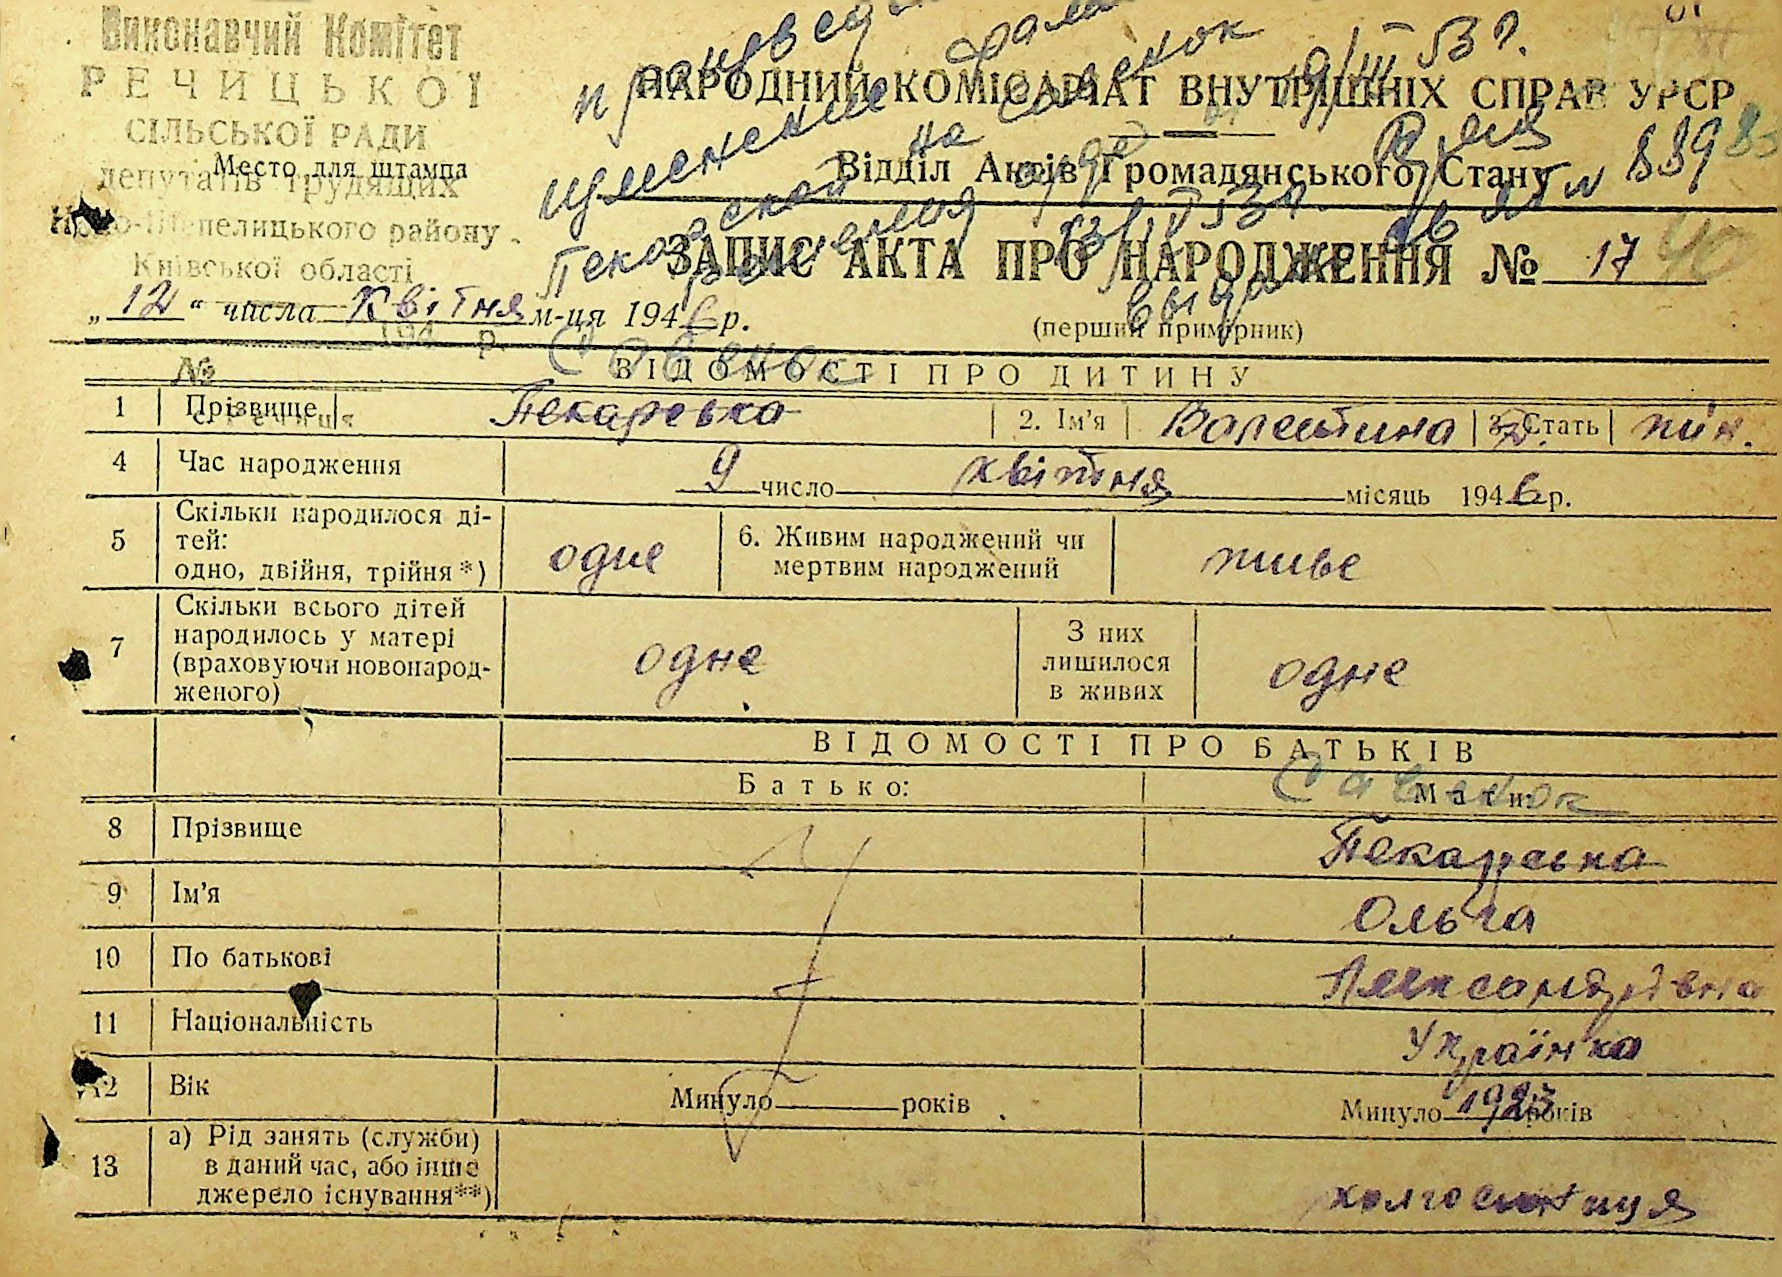 Виконавчий Комітет
РЕЧИЦЬКОЇ
СІЛЬСЬКОЇ РАДИ
Место для штампа
депутатів трудящих
Ново-Шепелицького району
Київської області
194 р.
№
с. Речиця
НАРОДНИЙ КОМІСАРІАТ ВНУТРІШНІХ СПРАВ УРСР
Відділ Актів Громадянського Стану
ЗАПИС АКТА ПРО НАРОДЖЕННЯ № 17
„12“ числа Квітня м-ця 1946 р.
(перший примірник)
изменение
на Савенок
19/III 53 г.
№ 839
40
Савенок
ВІДОМОСТІ ПРО ДИТИНУ
1 Прізвище Пекарська 2. Ім'я Валентина 3. Стать жін.
4 Час народження 9 число квітня місяць 1946 р.
5 Скільки народилося ді-
тей:
одно, двійня, трійня *) одне 6. Живим народжений чи
мертвим народжений живе
7 Скільки всього дітей
народилось у матері
(враховуючи новонарод-
женого) одне З них
лишилося
в живих одне
ВІДОМОСТІ ПРО БАТЬКІВ
Батько: Мати:
Савенок
8 Прізвище Пекарська
9 Ім'я Ольга
10 По батькові Александрівна
11 Національність Українка
12 Вік Минуло років Минуло 1923 років
13 а) Рід занять (служби)
в даний час, або інше
джерело існування **) колгоспниця